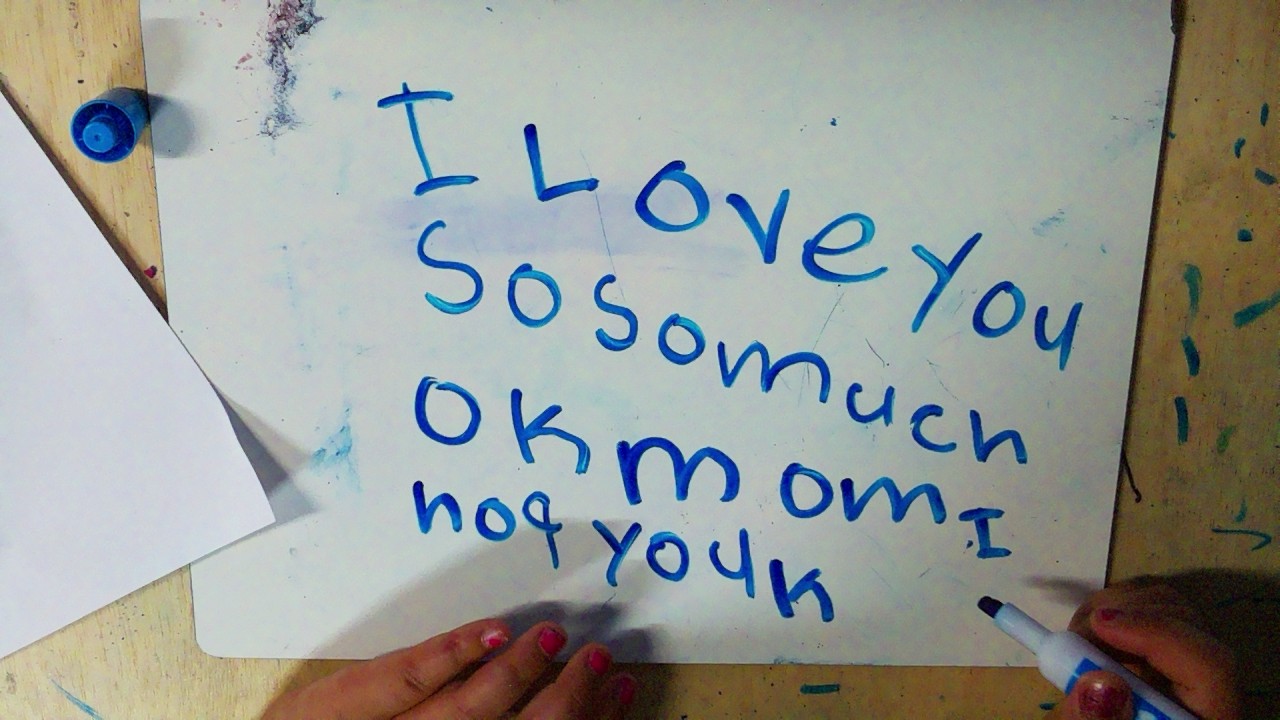 I Love you
So so much
ok mom I
hoq you k